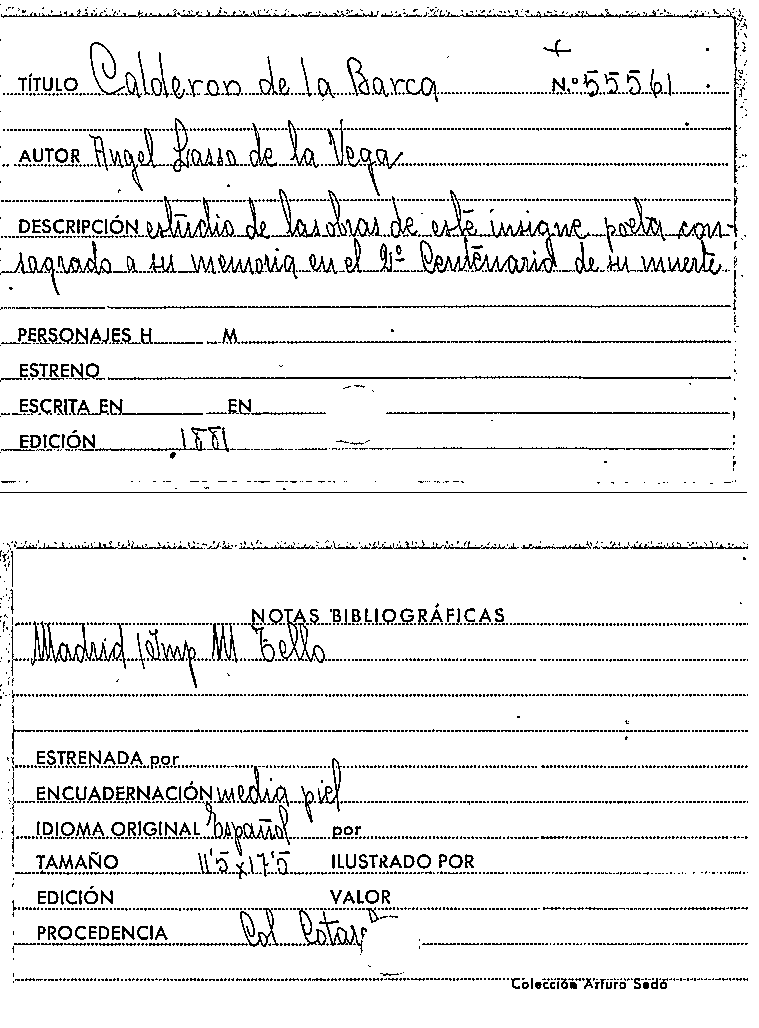 TÍTULO Calderon de la Barca N.º 55561
AUTOR Angel Lasso de la Vega
DESCRIPCIÓN estudio de las obras de este insigne poeta con-
sagrado a su memoria en el 2º Centenario de su muerte
PERSONAJES H M
ESTRENO
ESCRITA EN EN
EDICIÓN 1881
NOTAS BIBLIOGRÁFICAS
Madrid Imp M Tello
ESTRENADA por
ENCUADERNACIÓN media piel
IDIOMA ORIGINAL Español por
TAMAÑO 11'5 x 17'5 ILUSTRADO POR
EDICIÓN VALOR
PROCEDENCIA Col
Colección Arturo Sedó